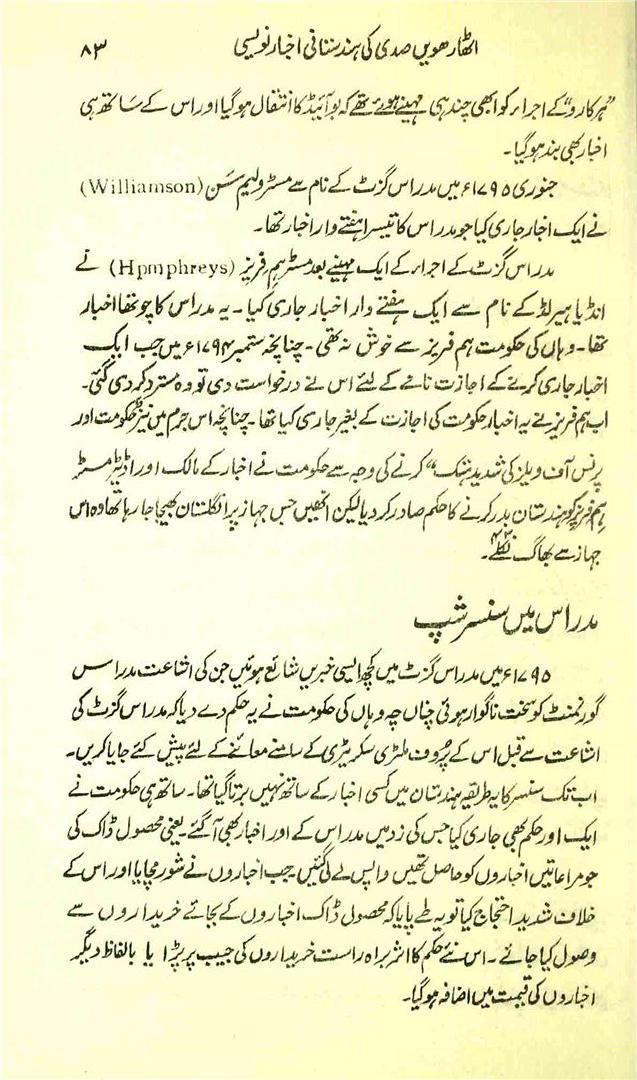 اٹھارھویں صدی کی ہندستانی اخبار نویسی ۸۳
”ہرکارو“ کے اجراء کو ابھی چند ہی مہینے ہوئے تھے کہ بوآئیڈ کا انتقال ہوگیا اور اس کے ساتھ ہی
اخبار بھی بند ہوگیا۔
جنوری ۱۷۹۵ء میں مدراس گزٹ کے نام سے مسٹر ولیم سَن (Williamson)
نے ایک اجار جاری کیا جو مدراس کا تیسرا ہفتے وار اخبار تھا۔
مدراس گزٹ کے اجراء کے ایک مہینے بعد مسٹر ہم فریز (Hpmphreys) نے
انڈیا ہیرلڈ کے نام سے ایک ہفتے وار اخبار جاری کیا۔ یہ مدراس کا چوتھا اخبار
تھا۔ وہاں کی حکومت ہم فریز سے خوش نہ تھی۔ چنانچہ ستمبر ۱۷۹۴ء میں جب ایک
اخبار جاری کرنے کے اجازت نامے کے لئے اس نے درخواست دی تو وہ مسترد کر دی گئی۔
اب ہم فریز نے یہ اخبار حکومت کی اجازت کے بغیر جاری کیا تھا۔ چنانچہ اس جرم میں نیز ”حکومت اور
پرنس آف ویلز کی شدید ہتک“ کرنے کی وجہ سے حکومت نے اخبار کے مالک اور اڈیٹر مسٹر
ہم فریز کو ہندستان بدر کرنے کا حکم صادر کر دیا لیکن انھیں جس جہاز پر انگلستان بھیجا جا رہا تھا وہ اس
جہاز سے بھاگ نکلے۔
مدراس میں سنسر شپ
۱۷۹۵ء میں مدراس گزٹ میں کچھ ایسی خبریں شائع ہوئیں جن کی اشاعت مدراس
گورنمنٹ کو سخت ناگوار ہوئی چناں چہ وہاں کی حکومت نے یہ حکم دے دیا کہ مدراس گزٹ کی
اشاعت سے قبل اس کے پُروف ملٹری سکریٹری کے سامنے معائنے کے لئے پیش کئے جایا کریں۔
اب تک سنسر کا یہ طریقہ ہندستان میں کسی اخبار کے ساتھ نہیں برتا گیا تھا۔ ساتھ ہی حکومت نے
ایک اور حکم بھی جاری کیا جس کی زد میں مدراس کے اور اخبار بھی آگئے۔ یعنی محصول ڈاک کی
جو مراعاتیں اخباروں کو حاصل تھیں واپس لے لی گئیں۔ جب اخباروں نے شور مچایا اور اس کے
خلاف شدید احتجاج کیا تو یہ طے پایا کہ محصول ڈاک اخباروں کے بجائے خریداروں سے
وصول کیا جائے۔ اس نئے حکم کا اثر براہ راست خریداروں کی جیب پر پڑا یا بالفاظ دیگر
اخباروں کی قیمت میں اضافہ ہوگیا۔